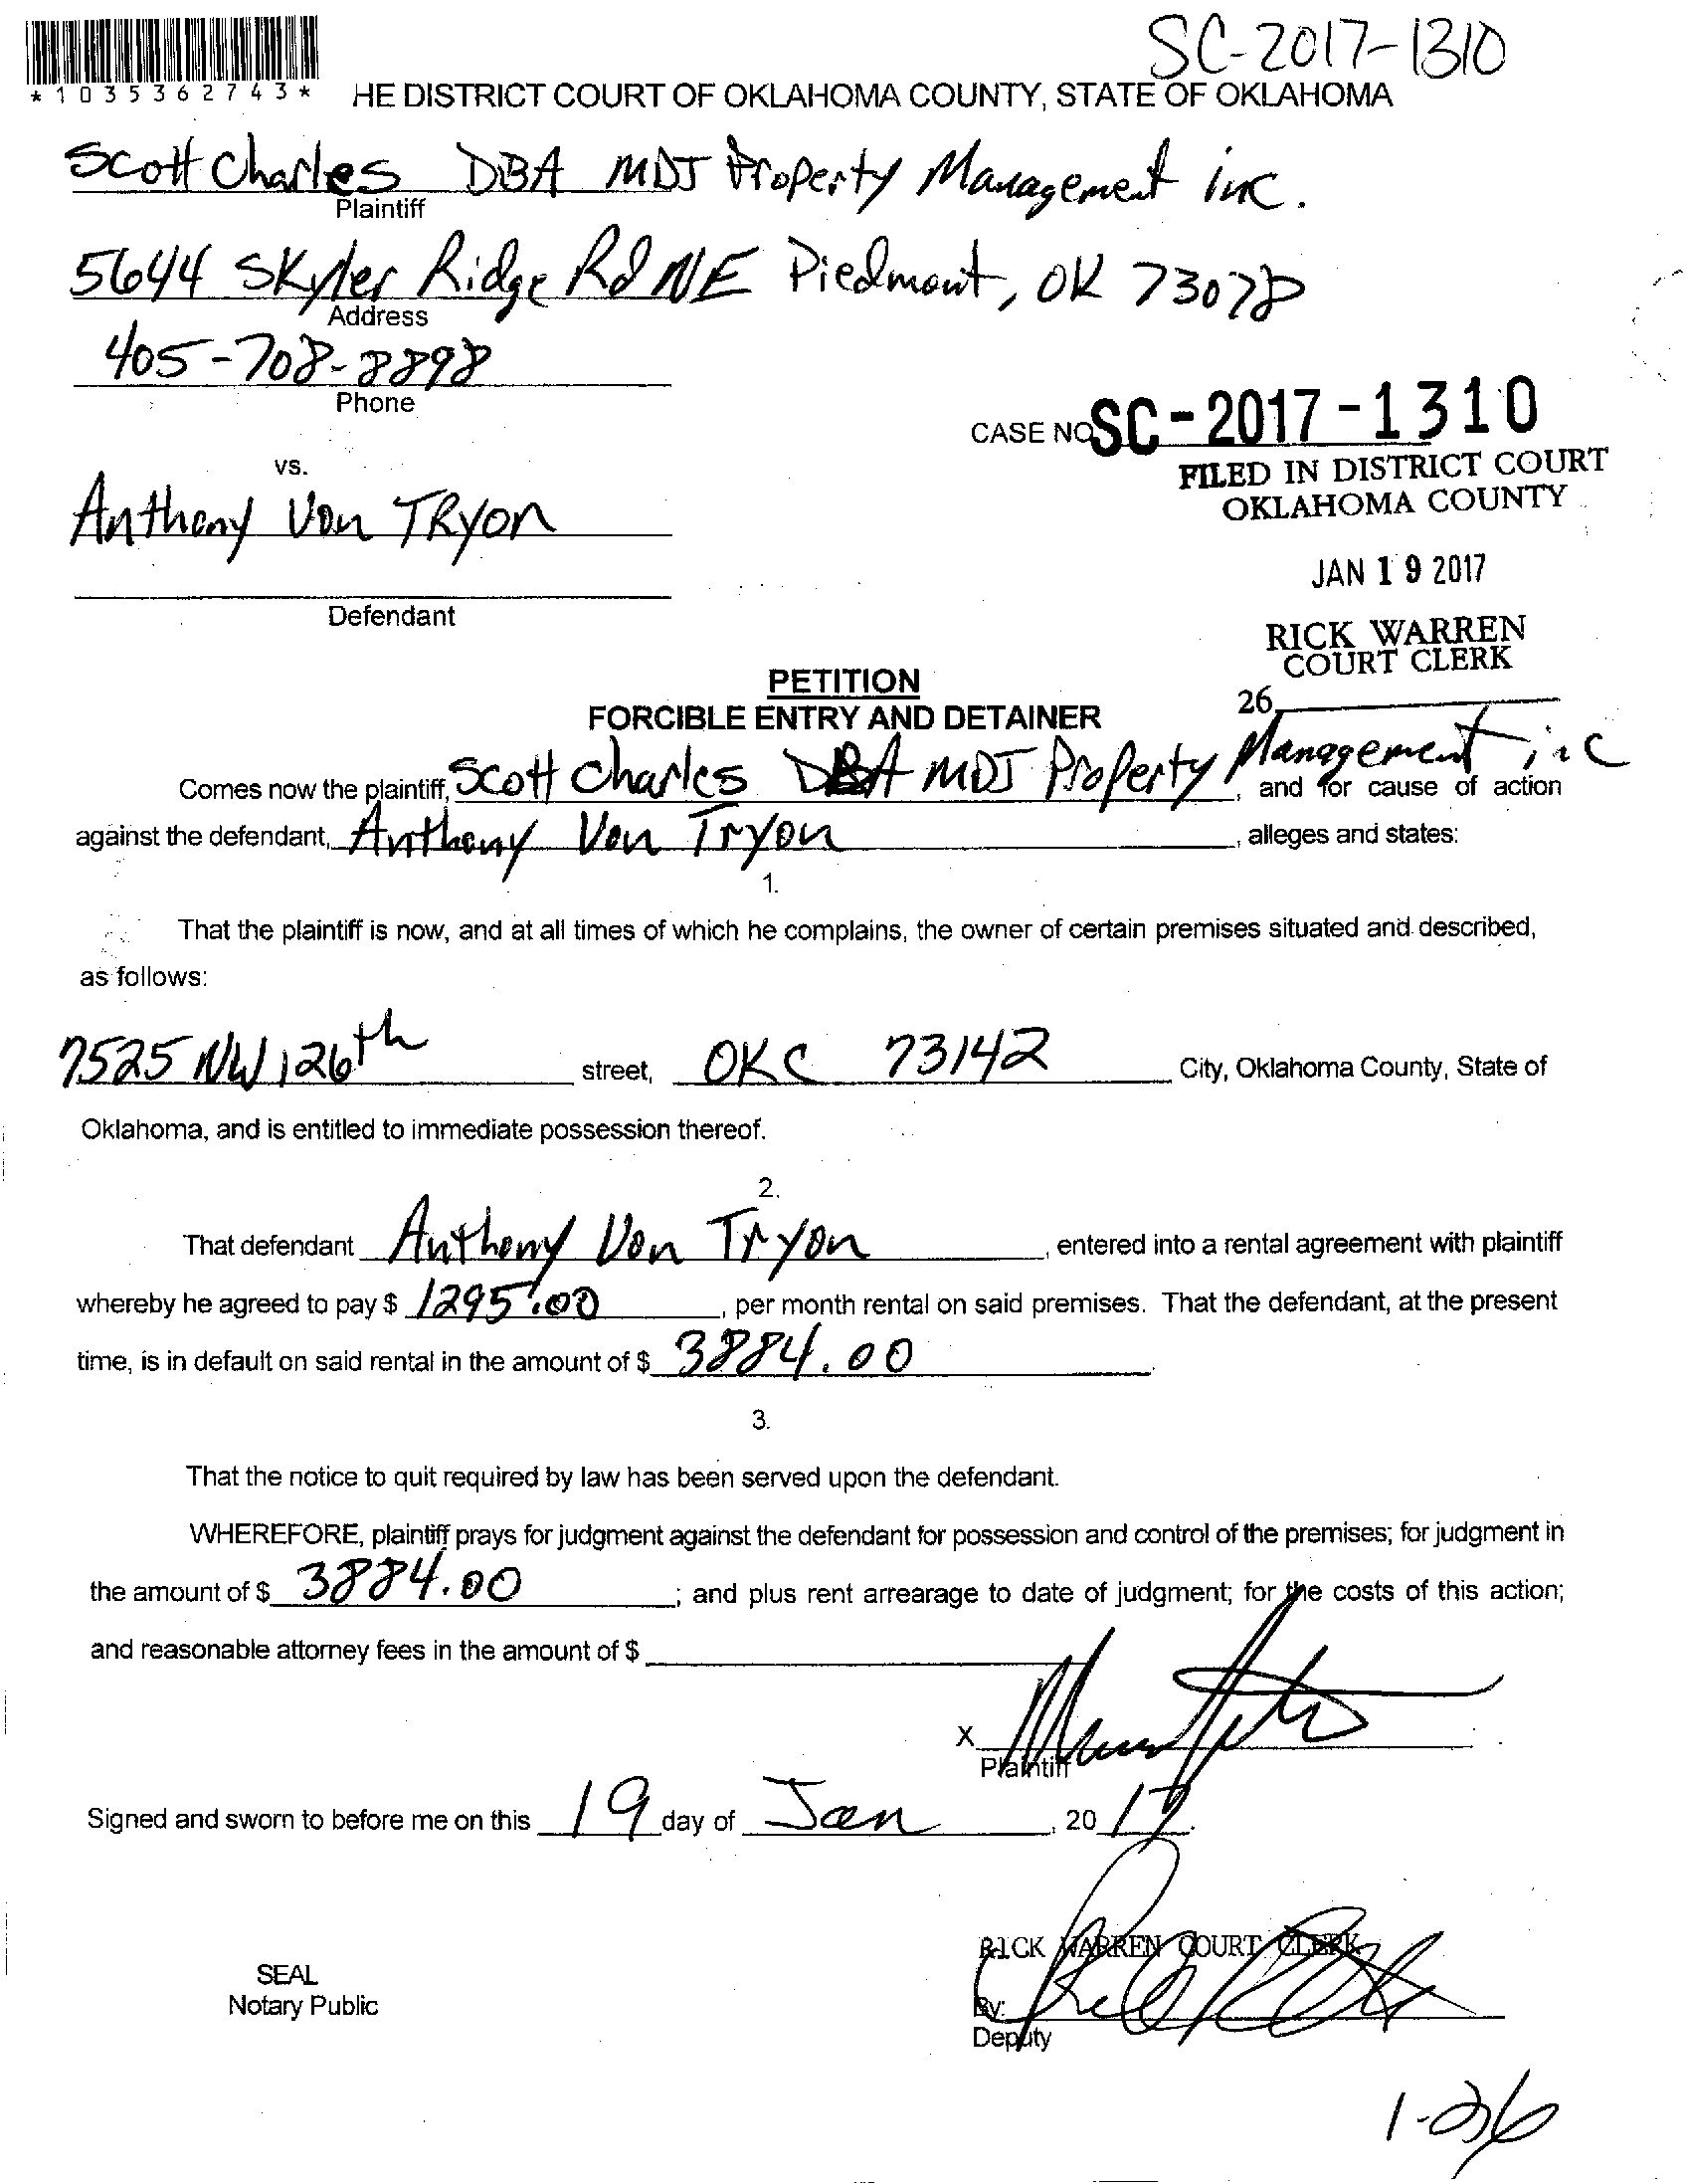 SC-2017-1310
*1035362743*
HE DISTRICT COURT OF OKLAHOMA COUNTY, STATE OF OKLAHOMA
Scott Charles DBA MDJ Property Management inc.
Plaintiff
5644 Skyler Ridge Rd NE Piedmont, OK 73078
Address
405-708-8898
Phone
CASE NO SC-2017-1310
FILED IN DISTRICT COURT
OKLAHOMA COUNTY
vs.
Anthony Von TRyon
JAN 19 2017
Defendant
RICK WARREN
COURT CLERK
PETITION
26
FORCIBLE ENTRY AND DETAINER
Comes now the plaintiff, Scott Charles DBA MDJ Property Management inc, and for cause of action
against the defendant, Anthony Von Tryon, alleges and states:
1.
That the plaintiff is now, and at all times of which he complains, the owner of certain premises situated and described,
as follows:
7525 NW 126th street, OKC 73142 City, Oklahoma County, State of
Oklahoma, and is entitled to immediate possession thereof.
2.
That defendant Anthony Von Tryon, entered into a rental agreement with plaintiff
whereby he agreed to pay $ 1295.00, per month rental on said premises. That the defendant, at the present
time, is in default on said rental in the amount of $ 3884.00.
3.
That the notice to quit required by law has been served upon the defendant.
WHEREFORE, plaintiff prays for judgment against the defendant for possession and control of the premises; for judgment in
the amount of $ 3884.00; and plus rent arrearage to date of judgment; for the costs of this action;
and reasonable attorney fees in the amount of $
X
Plaintiff
Signed and sworn to before me on this 19 day of Jan, 2017.
RICK WARREN COURT CLERK
SEAL
Notary Public
By:
Deputy
1-26